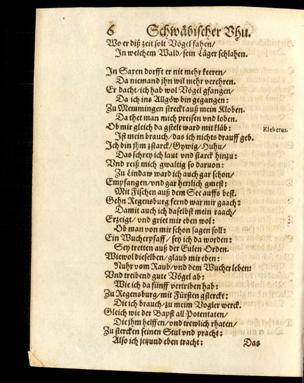 6 Schwäbischer Vhu.
Wo er diß zeit solt Vögel fahen/
In welchem Wald/ sein Läger schlahen.
In Saxen dorfft er nit mehr keeren/
Da niemand ihn wil mehr verehren.
Er dacht/ ich hab wol Vögel gfangen/
Da ich ins Allgöw bin gegangen:
Zu Memmingen streckt auß mein Kloben.
Da thet man mich preisen vnd loben.
Ob mir gleich da gstelt ward mit kläb: Kleberus.
Ist mein brauch/ das ich nichts drauff geb.
Ich bin jhm zstarck/ Huhu/
Das schrey ich laut vnd starck hinzu:
Vnd reiß mich gwaltig so daruon:
Zu Lindaw ward ich auch gar schon/
Empfangen/ vnd gar herzlich gmest:
Mit Fischen auß dem See auffs best.
Gehn Regenspurg fernd war mir gaach:
Damit auch ich daselbst mein raach/
Erzeigt/ vnd griet mir eben wol:
Ob man von mir schon sagen soll:
Ein Wucherpfaff/ sey ich da worden:
Sey tretten auß der Eulen Orden.
Wiewol dieselben/ glaub mir eben:
Nuhr vom Raub/ vnd dem Wucher leben:
Vnd treibend gute Vögel ab:
Wie ich da fünff vertriben hab:
Zu Regenspurg/ mit Fürsten gsterckt:
Die ich brauch/ zu meim Vogler werck.
Gleich wie der Bapst all Potentaten/
Die jhm helffen/ vnd trewlich rhaten/
Zu stercken seinen Stul vnd pracht:
Also ich jetzund eben tracht: Das